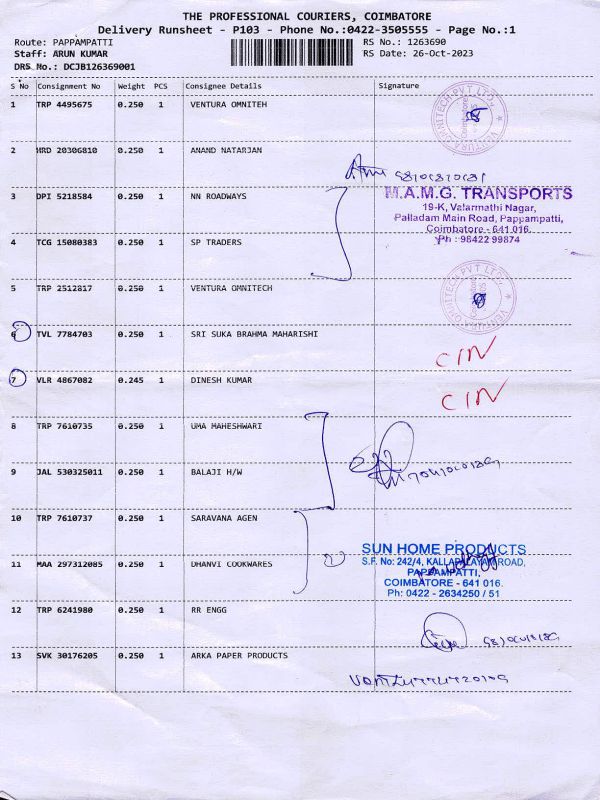 THE PROFESSIONAL COURIERS, COIMBATORE
Delivery Runsheet - P103 - Phone No.:0422-3505555 - Page No.:1
Route: PAPPAMPATTI RS No.: 1263690
Staff: ARUN KUMAR RS Date: 26-Oct-2023
DRS No.: DCJB126369001
S No Consignment No Weight PCS Consignee Details Signature
1 TRP 4495675 0.250 1 VENTURA OMNITEH
2 HRD 20306810 0.250 1 ANAND NATARJAN
3 DPI 5218584 0.250 1 NN ROADWAYS
M.A.M.G. TRANSPORTS
19-K, Valarmathi Nagar,
Palladam Main Road, Pappampatti,
Coimbatore - 641 016.
Ph : 98422 99874
4 TCG 15080383 0.250 1 SP TRADERS
5 TRP 2512817 0.250 1 VENTURA OMNITECH
6 TVL 7784703 0.250 1 SRI SUKA BRAHMA MAHARISHI
CIN
7 VLR 4867082 0.245 1 DINESH KUMAR
CIN
8 TRP 7610735 0.250 1 UMA MAHESHWARI
9 JAL 530325011 0.250 1 BALAJI H/W
10 TRP 7610737 0.250 1 SARAVANA AGEN
SUN HOME PRODUCTS
S.F. No: 242/4, ROAD,
PAPPAMPATTI,
COIMBATORE - 641 016.
Ph: 0422 - 2634250 / 51
11 MAA 297312085 0.250 1 DHANVI COOKWARES
12 TRP 6241980 0.250 1 RR ENGG
13 SVK 30176205 0.250 1 ARKA PAPER PRODUCTS